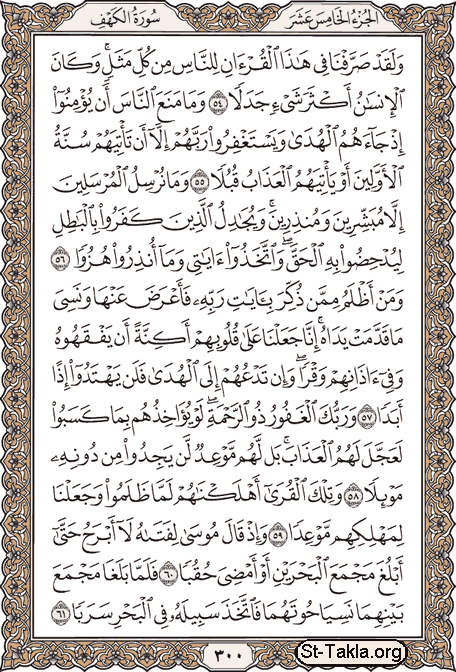 سُورَةُ الكَهْفِ الجُزْءُ الخَامِسَ عَشَرَ
وَلَقَدْ صَرَّفْنَا فِي هَٰذَا ٱلْقُرْءَانِ لِلنَّاسِ مِن كُلِّ مَثَلٍۚ وَكَانَ
ٱلْإِنسَٰنُ أَكْثَرَ شَىْءٍ جَدَلًا ٥٤ وَمَا مَنَعَ ٱلنَّاسَ أَن يُؤْمِنُوٓا۟
إِذْ جَآءَهُمُ ٱلْهُدَىٰ وَيَسْتَغْفِرُوا۟ رَبَّهُمْ إِلَّآ أَن تَأْتِيَهُمْ سُنَّةُ
ٱلْأَوَّلِينَ أَوْ يَأْتِيَهُمُ ٱلْعَذَابُ قُبُلًا ٥٥ وَمَا نُرْسِلُ ٱلْمُرْسَلِينَ
إِلَّا مُبَشِّرِينَ وَمُنذِرِينَۚ وَيُجَٰدِلُ ٱلَّذِينَ كَفَرُوا۟ بِٱلْبَٰطِلِ
لِيُدْحِضُوا۟ بِهِ ٱلْحَقَّۖ وَٱتَّخَذُوٓا۟ ءَايَٰتِى وَمَآ أُنذِرُوا۟ هُزُوًا ٥٦
وَمَنْ أَظْلَمُ مِمَّن ذُكِّرَ بِـَٔايَٰتِ رَبِّهِۦ فَأَعْرَضَ عَنْهَا وَنَسِىَ
مَا قَدَّمَتْ يَدَاهُۚ إِنَّا جَعَلْنَا عَلَىٰ قُلُوبِهِمْ أَكِنَّةً أَن يَفْقَهُوهُ
وَفِىٓ ءَاذَانِهِمْ وَقْرًاۖ وَإِن تَدْعُهُمْ إِلَى ٱلْهُدَىٰ فَلَن يَهْتَدُوٓا۟ إِذًا
أَبَدًا ٥٧ وَرَبُّكَ ٱلْغَفُورُ ذُو ٱلرَّحْمَةِۖ لَوْ يُؤَاخِذُهُم بِمَا كَسَبُوا۟
لَعَجَّلَ لَهُمُ ٱلْعَذَابَۚ بَل لَّهُم مَّوْعِدٌ لَّن يَجِدُوا۟ مِن دُونِهِۦ
مَوْئِلًا ٥٨ وَتِلْكَ ٱلْقُرَىٰٓ أَهْلَكْنَٰهُمْ لَمَّا ظَلَمُوا۟ وَجَعَلْنَا
لِمَهْلِكِهِم مَّوْعِدًا ٥٩ وَإِذْ قَالَ مُوسَىٰ لِفَتَىٰهُ لَآ أَبْرَحُ حَتَّىٰٓ
أَبْلُغَ مَجْمَعَ ٱلْبَحْرَيْنِ أَوْ أَمْضِىَ حُقُبًا ٦٠ فَلَمَّا بَلَغَا مَجْمَعَ
بَيْنِهِمَا نَسِيَا حُوتَهُمَا فَٱتَّخَذَ سَبِيلَهُۥ فِى ٱلْبَحْرِ سَرَبًا ٦١
٣٠٠
St-Takla.org